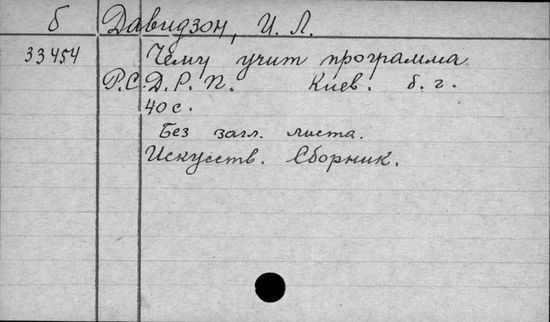 б Давидзон, И. Л.
33454 Чему учит программа
Р.С.Д.Р.П. Киев. б. г.
40 с.
Без загл. листа.
Искусств. Сборник.